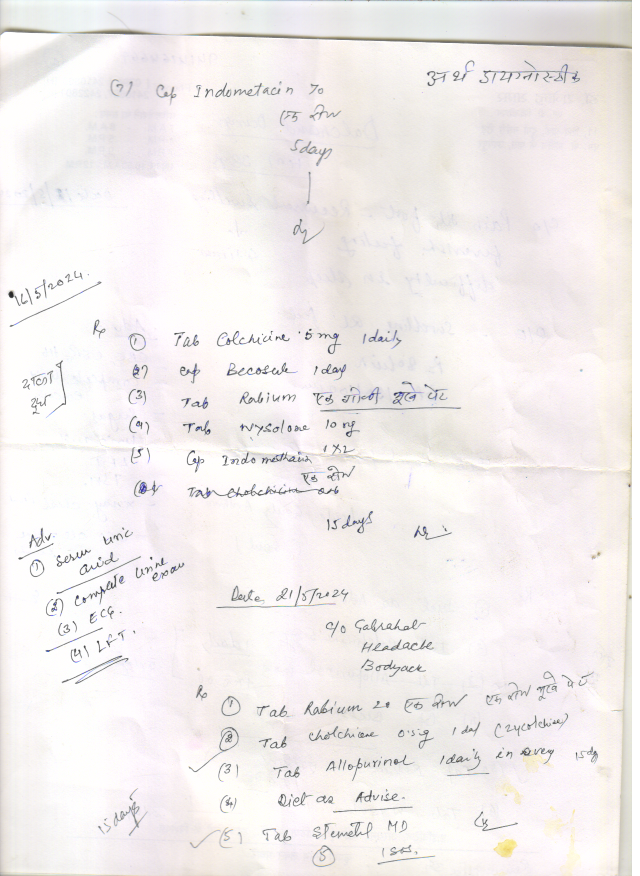 अर्थ डायग्नोस्टीक
(7) Cap Indometacin 70
एक रोज
5 days
16/5/2024.
Rx
① Tab Colchicine .5 mg 1 daily
2) Cap Becosule 1 day
(3) Tab Rabium एक गोली भूखे पेट
(4) Tab Wysolone 10 mg
(5) Cap Indomethacin 1 X 2
एक रोज
Tab Cholchicine
15 days
Adv.
① Serum Uric acid
(2) Complete Urine exam
(3) ECG.
(4) LFT.
Date 21/5/2024
c/o Gabrahat
Headache
Bodyache
Rx
① Tab Rabium 20 एक रोज एक रोज भूखे पेट
② Tab Cholchicine 0.5g 1 day (Zycolchine)
(3) Tab Allopurinol 1 daily in every 15 day
(4) Diet as Advise.
(5) Tab Stemetil MD
⑤ 1 SOS.
15 days